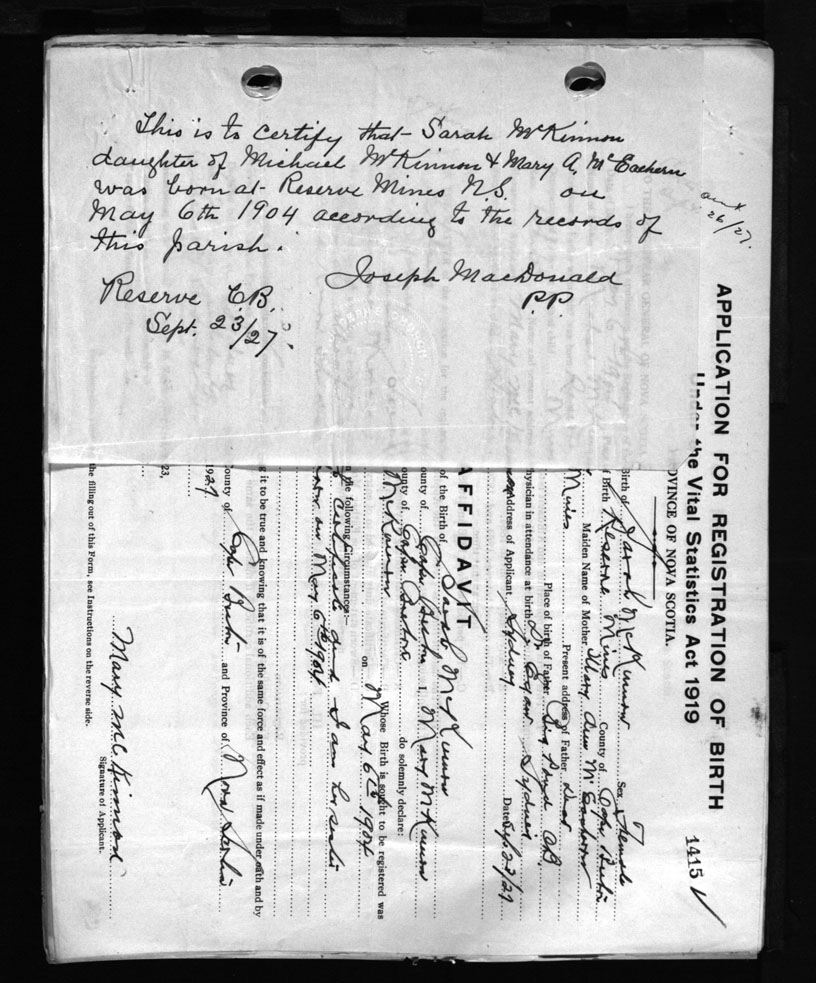 This is to certify that Sarah McKinnon
daughter of Michael McKinnon & Mary A. McEachern
was born at Reserve Mines N.S. on
May 6th 1904 according to the records of
this parish.
Joseph MacDonald
P.P.
Reserve C.B.
Sept. 23/27.
26/27.
APPLICATION FOR REGISTRATION OF BIRTH
Under the Vital Statistics Act 1919
1415
OVINCE OF NOVA SCOTIA.
Birth of Sarah McKinnon Sex Female
f Birth Reserve Mines County of Cape Breton
Maiden Name of Mother Mary Ann McEachern
Mines Present address of Father
Place of birth of Father C.B.
hysician in attendance at birth Dr Sydney
Address of Applicant Sydney Date Sep 23/27
AFFIDAVIT
of the Birth of Sarah McKinnon
ounty of Cape Breton I, Mary McKinnon
ounty of Cape Breton do solemnly declare:
McKinnon Whose Birth is sought to be registered was
on May 6th 1904
n the following Circumstances:—
certificate and I am her sister
born on May 6th 1904
g it to be true and knowing that it is of the same force and effect as if made under oath and by
ounty of Cape Breton and Province of Nova Scotia
1927
23,
Mary McKinnon
Signature of Applicant.
the filling out of this Form, see Instructions on the reverse side.